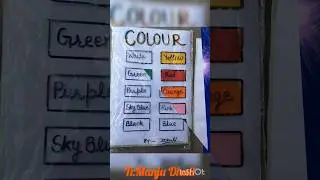 COLOUR
White Yellow
Green Red
Purple Orange
Sky Blue Pink
Black Blue
By-
Green
Purple
Sky Blue
Tr.Manju Dhush